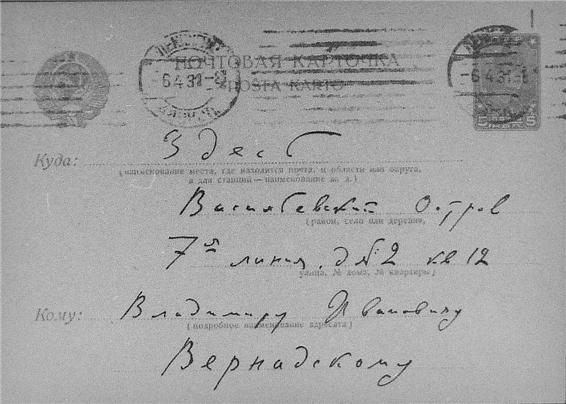 ПОЧТОВАЯ КАРТОЧКА
POŜTA KARTO
-6.4.31-
-6.4.31-
5 5
Куда: Здесь
(наименование места, где находится почта, и области или округа,
а для станций—наименование ж. д.)
Васильевский Остров
(район, село или деревня,
7ая линия, д № 2 кв 12
улица, № дома, № квартиры)
Кому: Владимиру Ивановичу
(подробное наименование адресата)
Вернадскому